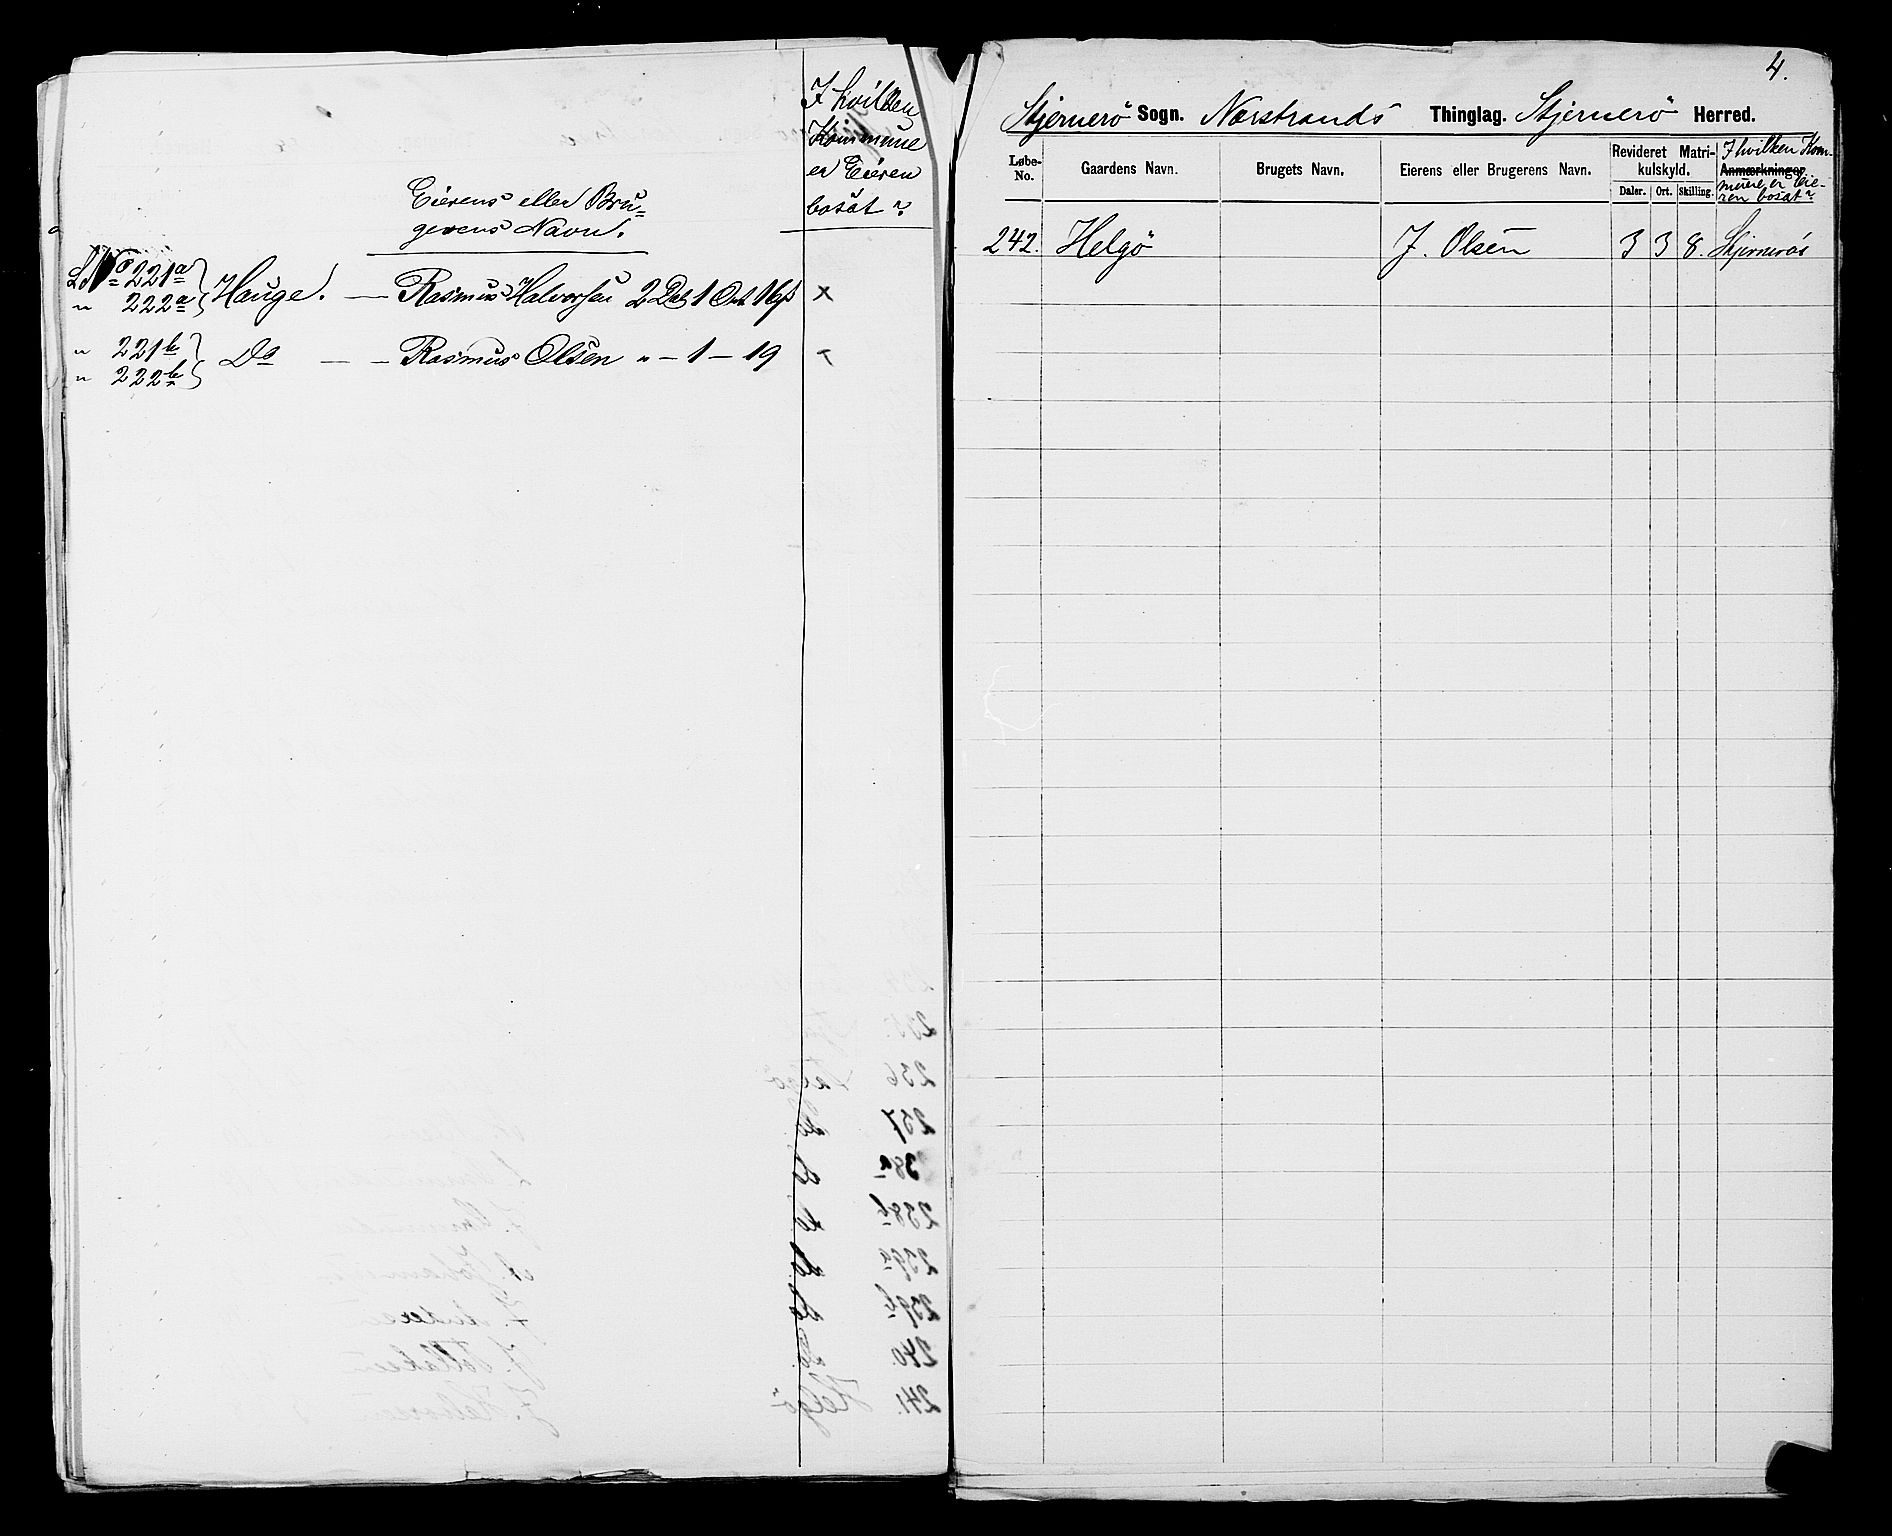 I hvilken
Kommune
er Eieren
bosat?
Eierens eller Bru-
gerens Navn.
LNo 221a } Hauge. — Rasmus Halvorsen 2 Dal 1 Ort 16 β x
" 222a
" 221b } Do — — Rasmus Olsen " — 1 — 19
" 222b
4.
Stjernerö Sogn. Nærstrands Thinglag. Stjernerö Herred.
Løbe-No. Gaardens Navn. Brugets Navn. Eierens eller Brugerens Navn. Revideret Matri-kulskyld. Daler. Ort. Skilling. Anmærkninger. I hvilken Kommune er Eieren bosat?
242. Helgö J. Olsen 3 3 8. Stjernerös